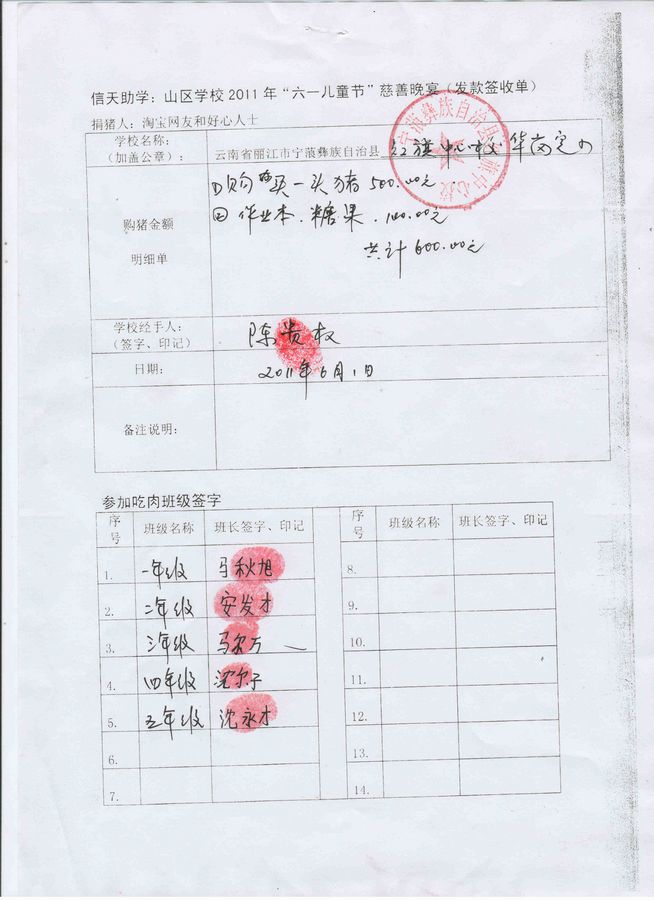 信天助学：山区学校2011年“六一儿童节”慈善晚宴（发款签收单）
捐猪人：淘宝网友和好心人士
学校名称：
（加盖公章）：
云南省丽江市宁蒗彝族自治县 红旗中心校华岗完小
宁蒗彝族自治县红旗中心校
购猪金额
明细单
①购买一头猪500.00元
②作业本.糖果.100.00元
共计600.00元
学校经手人：
（签字、印记）
陈贵权
日期：
2011年6月1日
备注说明：
参加吃肉班级签字
序号 班级名称 班长签字、印记 序号 班级名称 班长签字、印记
1. 一年级 马秋旭 8.
2. 二年级 安发才 9.
3. 三年级 马尔万 10.
4. 四年级 沈尔子 11.
5. 五年级 沈永才 12.
6. 13.
7. 14.